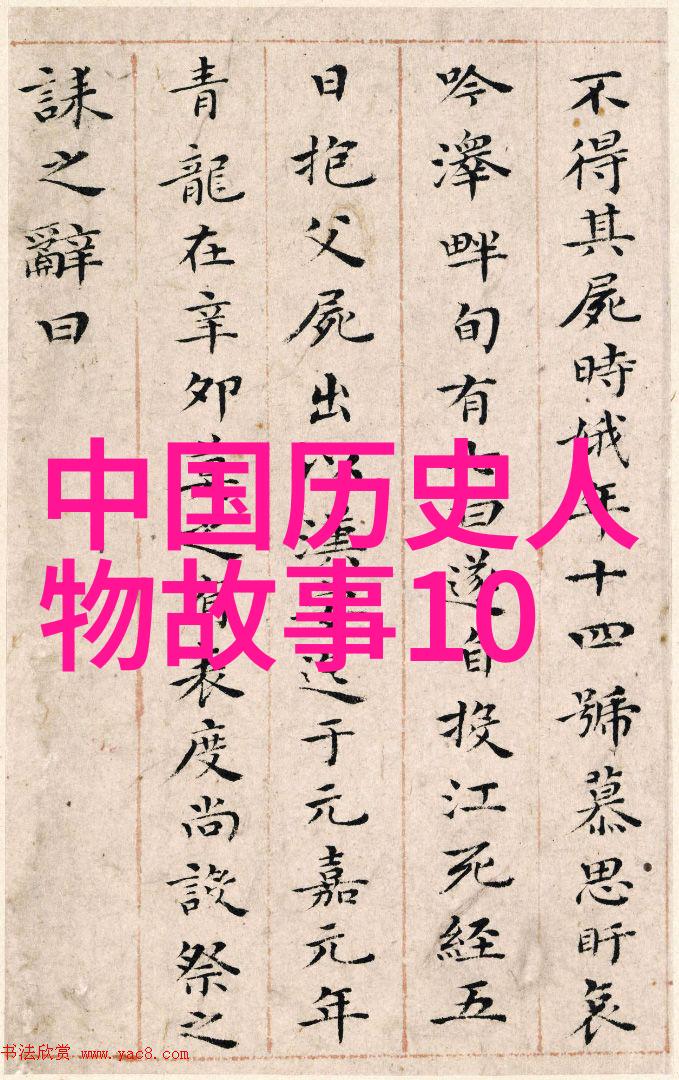 不得其屍時娥年十四號慕思盱哀
吟澤畔旬有七日遂自投江死經五
日抱父屍出漢迄于元嘉元年
青龍在辛卯之有表度尚設祭之
誄之辭曰
中国历史人
物故事10
书法欣赏 www.yac8.com